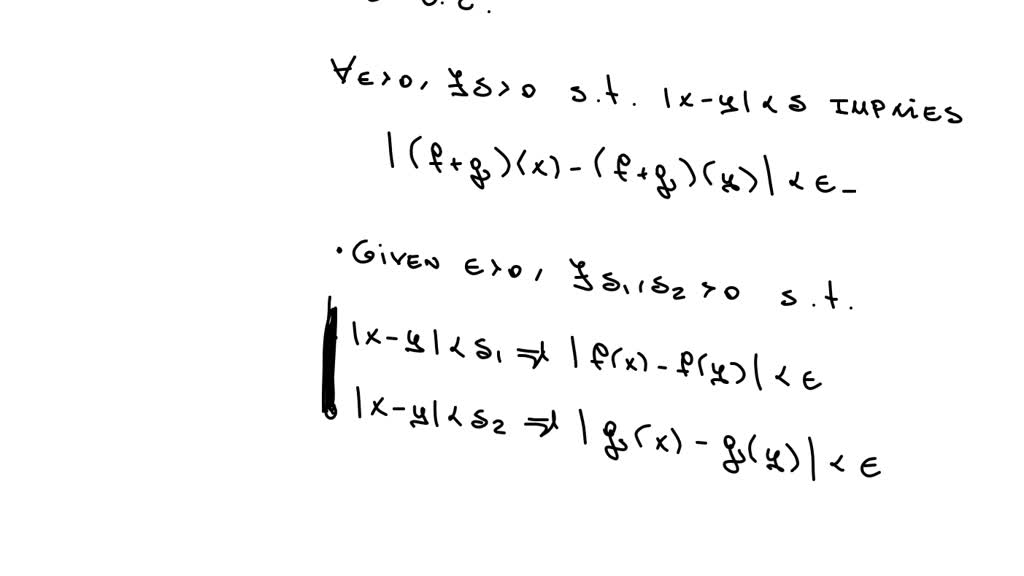 ∀ε>0, ∃δ>0 s.t. |x-y|<δ IMPLIES
|(f+g)(x)-(f+g)(y)|<ε-
•GIVEN ε>0, ∃δ₁,δ₂>0 s.t.
|x-y|<δ₁ ⇒ |f(x)-f(y)|<ε
|x-y|<δ₂ ⇒ |g(x)-g(y)|<ε